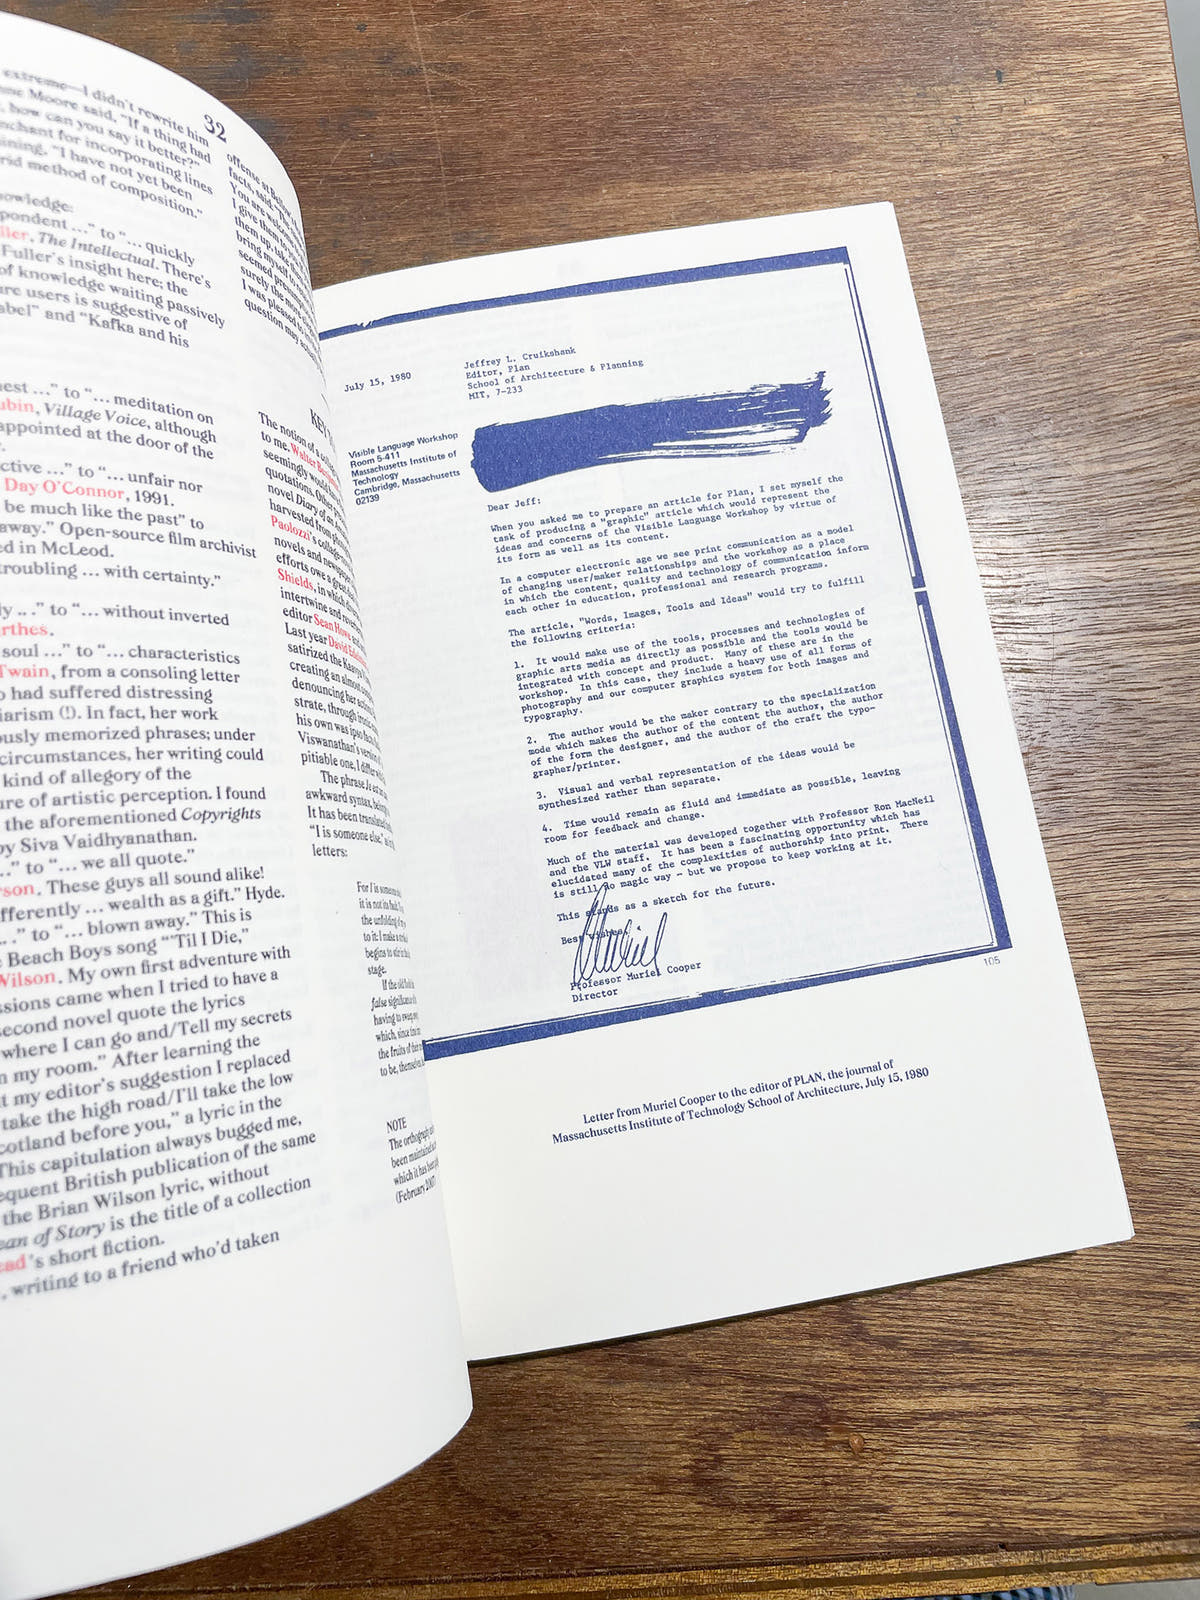 extreme—I didn't rewrite him
Moore said, "If a thing had
how can you say it better?"
for incorporating lines
"I have not yet been
method of composition."
" to "… quickly
The Intellectual. There's
Fuller's insight here; the
of knowledge waiting passively
users is suggestive of
and "Kafka and his
…" to "… meditation on
Village Voice, although
appointed at the door of the
…" to "… unfair nor
Day O'Connor, 1991.
be much like the past" to
away." Open-source film archivist
in McLeod.
troubling … with certainty."
…" to "… without inverted
soul …" to "… characteristics
Twain, from a consoling letter
had suffered distressing
(!). In fact, her work
memorized phrases; under
circumstances, her writing could
kind of allegory of the
of artistic perception. I found
the aforementioned Copyrights
by Siva Vaidhyanathan.
…" to "… we all quote."
These guys all sound alike!
… wealth as a gift." Hyde.
" to "… blown away." This is
Beach Boys song "'Til I Die,"
Wilson. My own first adventure with
came when I tried to have a
second novel quote the lyrics
where I can go and/Tell my secrets
my room." After learning the
my editor's suggestion I replaced
take the high road/I'll take the low
before you," a lyric in the
This capitulation always bugged me,
British publication of the same
the Brian Wilson lyric, without
of Story is the title of a collection
's short fiction.
, writing to a friend who'd taken
32
offense at
facts, said,
You are welcome
I give them to
them up, take
bring myself to
seemed
surely the more
I was pleased to
question may
KEY
The notion of a
to me. Walter
seemingly would
quotations. Other
novel Diary of an
harvested from
Paolozzi's collage
novels and newspaper
efforts owe a great
Shields, in which
intertwine and
editor Sean Howe
Last year David
satirized the
creating an almost
denouncing her
strate, through
his own was ipso
Viswanathan's version
pitiable one, I
The phrase Je est
awkward syntax,
It has been translated
"I is someone else,"
letters:
For I is someone
it is not its
the unfolding of
to it: I make a
begins to stir in the
stage.
If the old
false significance
having to sweep
which, since
the fruits of their
to be, themselves,
NOTE
The orthography
been maintained
which it has been
(February 2007
July 15, 1980
Jeffrey L. Cruikshank
Editor, Plan
School of Architecture & Planning
MIT, 7-233
Visible Language Workshop
Room 5-411
Massachusetts Institute of
Technology
Cambridge, Massachusetts
02139
Dear Jeff:
When you asked me to prepare an article for Plan, I set myself the
task of producing a "graphic" article which would represent the
ideas and concerns of the Visible Language Workshop by virtue of
its form as well as its content.
In a computer electronic age we see print communication as a model
of changing user/maker relationships and the workshop as a place
in which the content, quality and technology of communication inform
each other in education, professional and research programs.
The article, "Words, Images, Tools and Ideas" would try to fulfill
the following criteria:
1. It would make use of the tools, processes and technologies of
graphic arts media as directly as possible and the tools would be
integrated with concept and product. Many of these are in the
workshop. In this case, they include a heavy use of all forms of
photography and our computer graphics system for both images and
typography.
2. The author would be the maker contrary to the specialization
mode which makes the author of the content the author, the author
of the form the designer, and the author of the craft the typo-
grapher/printer.
3. Visual and verbal representation of the ideas would be
synthesized rather than separate.
4. Time would remain as fluid and immediate as possible, leaving
room for feedback and change.
Much of the material was developed together with Professor Ron MacNeil
and the VLW staff. It has been a fascinating opportunity which has
elucidated many of the complexities of authorship into print. There
is still no magic way - but we propose to keep working at it.
This stands as a sketch for the future.
Best wishes,
Muriel
Professor Muriel Cooper
Director
105
Letter from Muriel Cooper to the editor of PLAN, the journal of
Massachusetts Institute of Technology School of Architecture, July 15, 1980